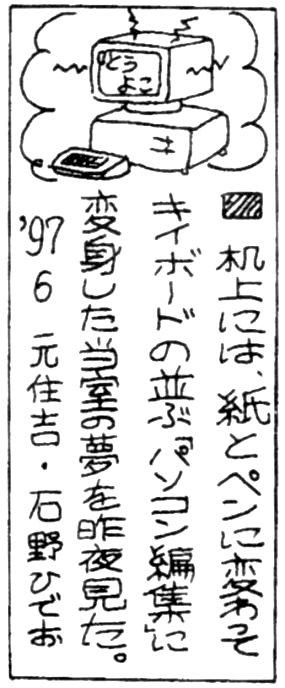 『とう
よこ
▨ 机上には、紙とペンに変わって
キイボードの並ぶ「パソコン編集」に
変身した当室の夢を昨夜見た。
'97 6 元住吉・石野ひでお